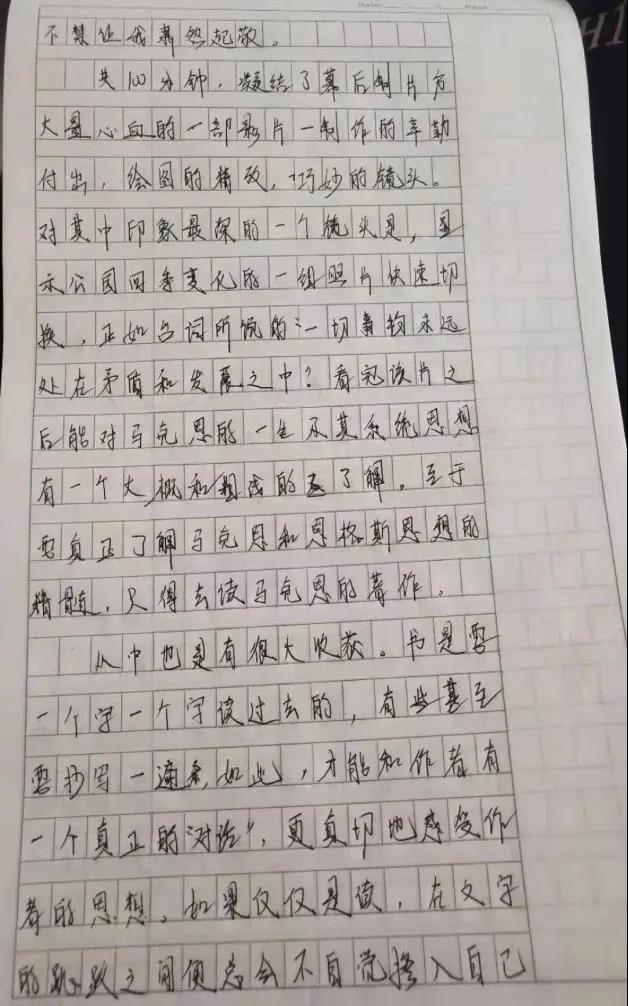 不禁让我肃然起敬。
共100分钟，凝结了幕后制片方
大量心血的一部影片一制作的辛勤
付出，绘图的精致，巧妙的镜头。
对其中印象最深的一个镜头是，显
示公园四季变化的一组照片快速切
换，正如台词所说的:一切事物永远
处在矛盾和发展之中？看完该片之
后能对马克思的一生及其系统思想
有一个大概和粗浅的了解，至于
要真正了解马克思和恩格斯思想的
精髓，只得去读马克思的著作。
从中也是有很大收获。书是要
一个字一个字读过去的，有些甚至
要抄写一遍，如此，才能和作者有
一个真正的"对话"，更真切地感受作
者的思想。如果仅仅是读，在文字
的跳跃之间便总会不自觉掺入自己